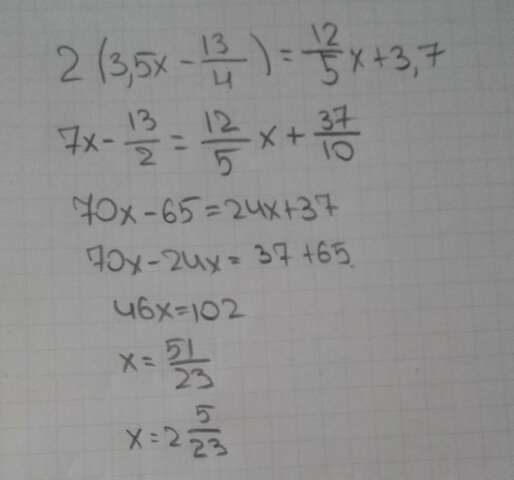 2 (3,5x - 13/4) = 12/5 x + 3,7
7x - 13/2 = 12/5 x + 37/10
70x - 65 = 24x + 37
70x - 24x = 37 + 65.
46x = 102
x = 51/23
x = 2 5/23